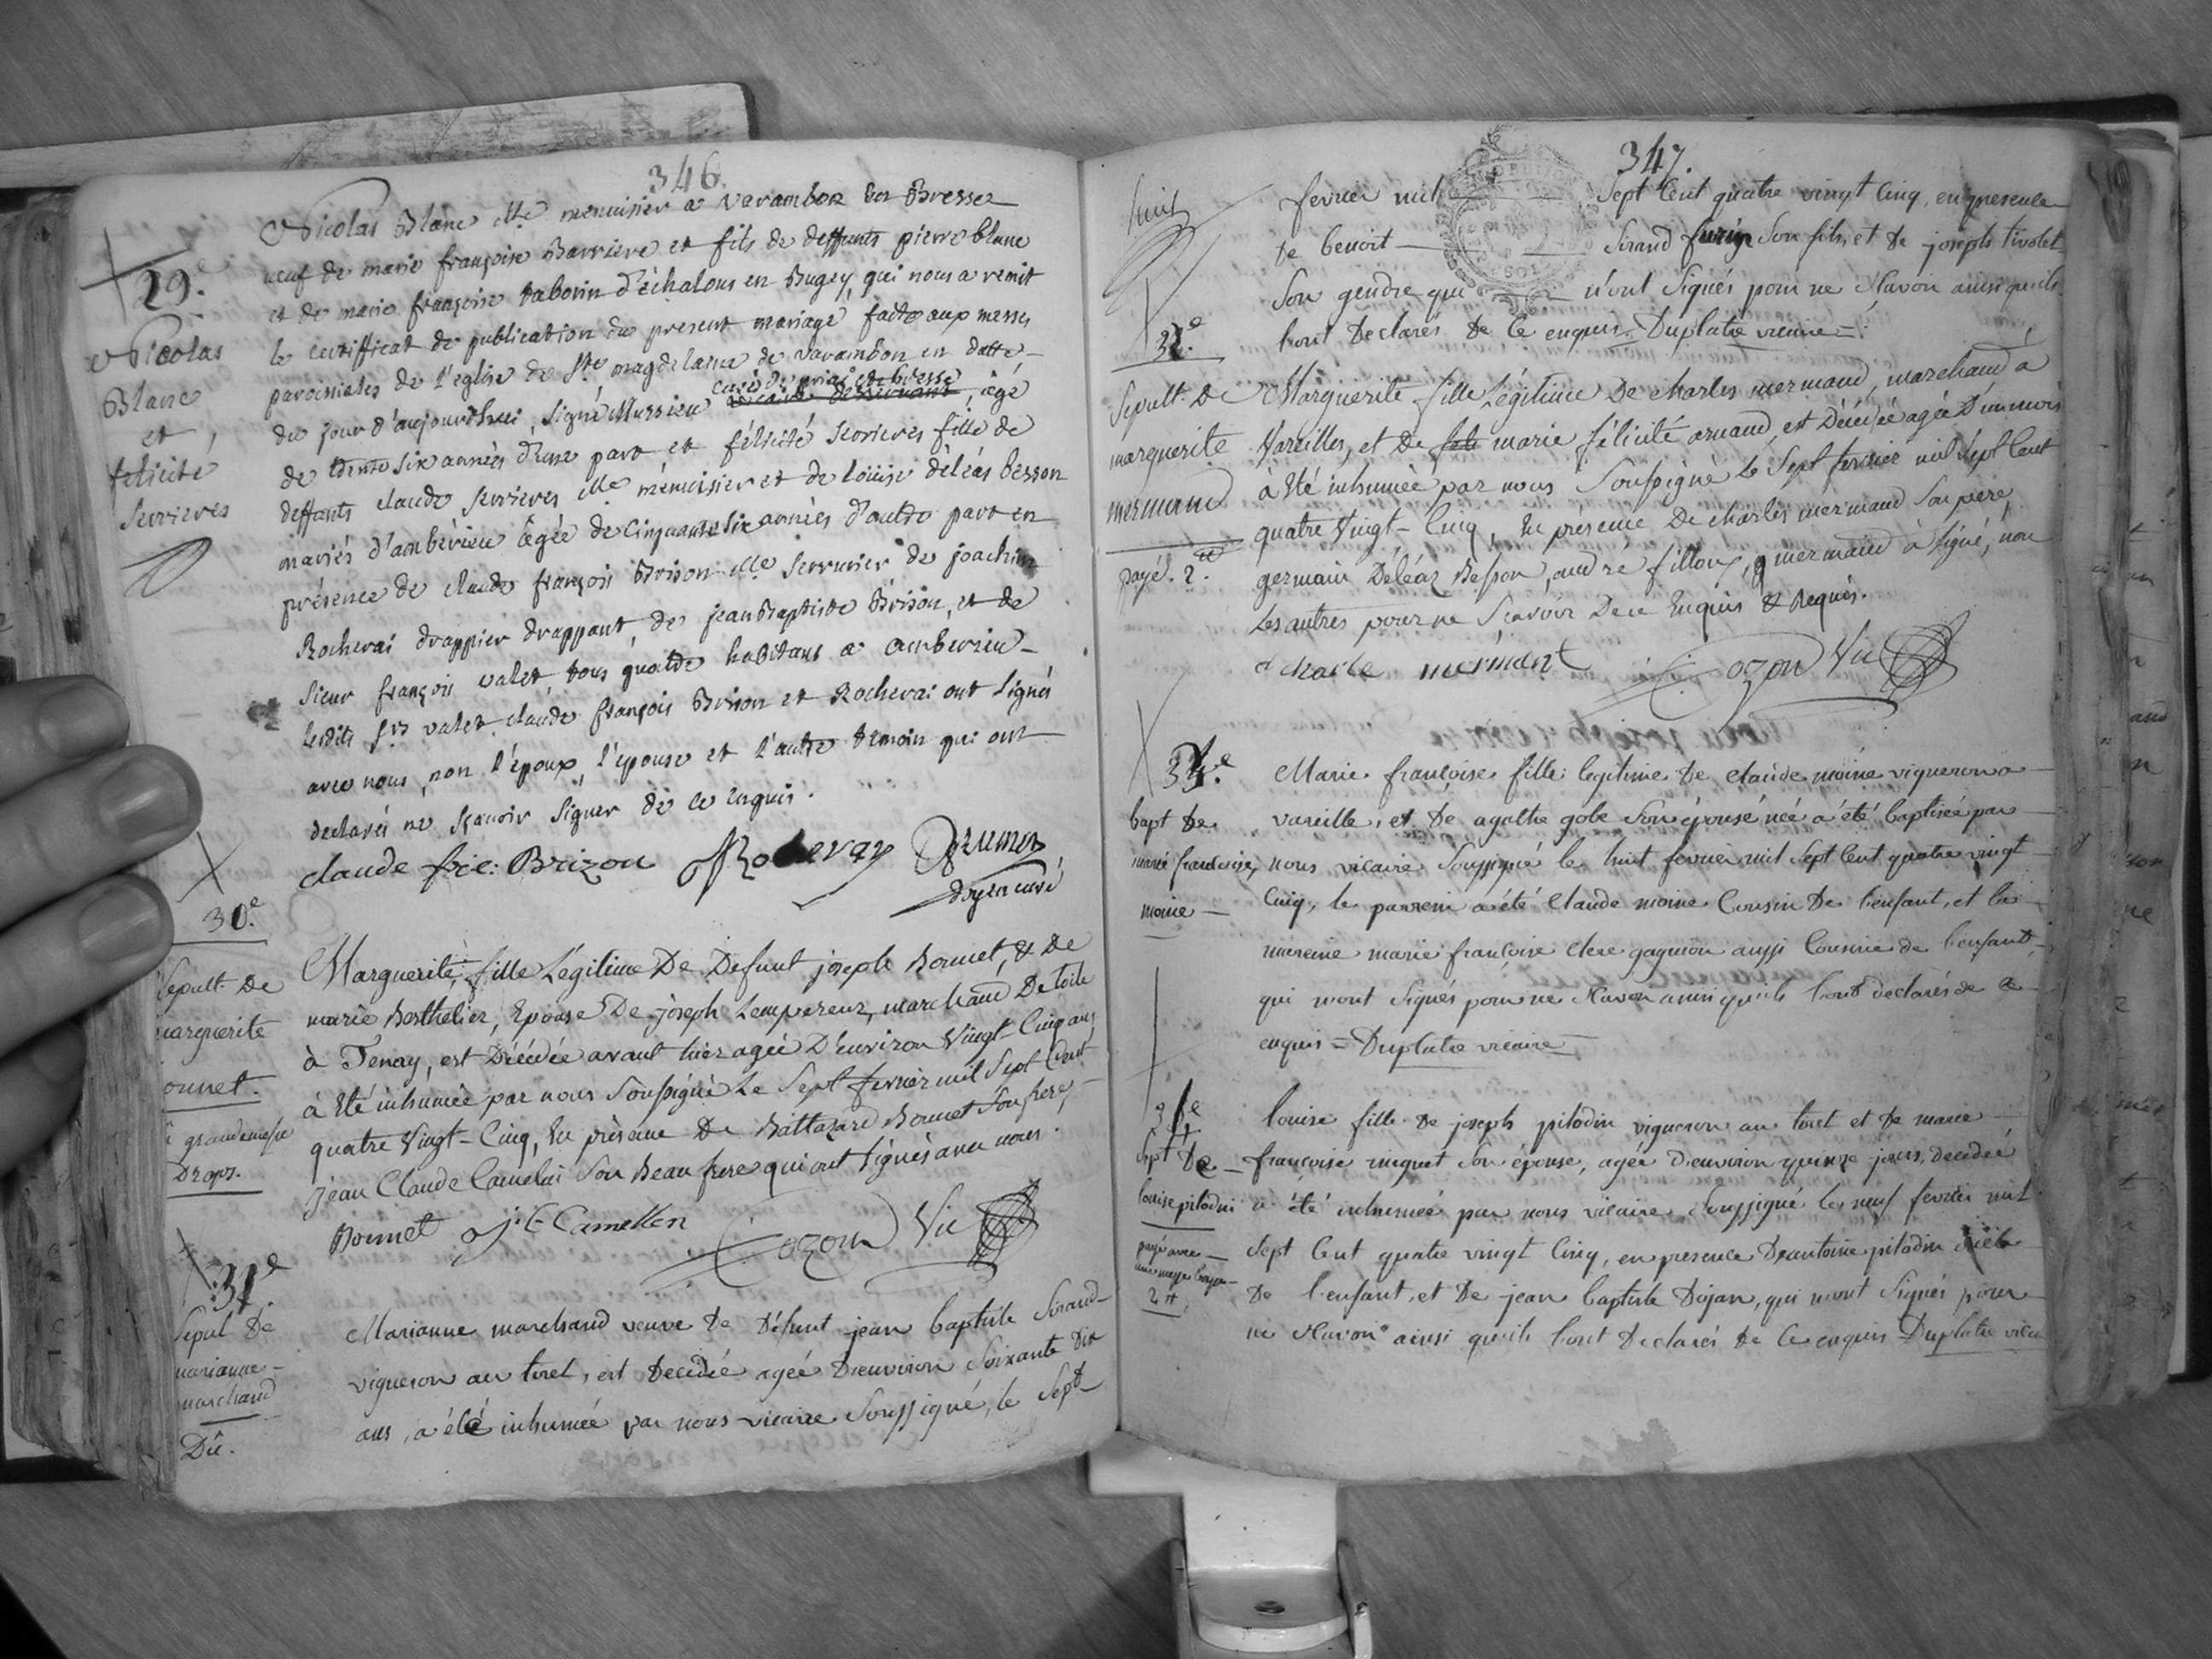 346.
29.e
Nicolas
Blanc
et
felicité
Serrieres
Nicolas Blanc Me menuisier a varambon en Bresse
veuf de marie françoise Barriere et fils de deffunts pierre blanc
et de marie françoise taborin d'échalous en Bugey, qui nous a remit
le certifficat de publication du present mariage faitte aux messes
paroissiales de l'eglise de Ste magdelaine de varambon en datte
du jour d'aujourdhuy, signé Mussieu curé de priay en bresse, âgé
de trente six années d'une part et félicité serrieres fille de
deffunts claude serrieres Me menuisier et de louise déléas besson
mariés d'ambérieu âgée de cinquante six années d'autre part en
présence de claude françois Brison Me serrurier de joachim
Rocherai drappier drappant, de jean Baptiste Brison, et de
sieur françois valet, tous quatre habitans a ambérieu
lesdits srs valet, claude françois Brison et Rocherai ont signés
avec nous, non l'époux, l'épouse et l'autre témoin qui ont
declarés ne sçavoir signer de ce enquis.
claude frc: Brizon Rocheray Brunet
doyen curé
30.e
Sepult. De
marguerite
onnet.
grandemesse
Draps.
Marguerite, fille Légitime De Defunt joseph Bonnet, & De
marie Berthelier, Epouse De joseph Lempereur, marchand De toile
à Tenay, est Décédée avant hier agée D'environ Vingt Cinq ans
à Eté inhumée par nous soussigné Le Sept fevrier mil Sept Cent
quatre Vingt-Cinq, En présence De Baltazard Bonnet Son frere,
jean Claude Camelin Son Beau frere qui ont signés avec nous.
Bonnet J C Camellin Cozon Vic
31.e
Sepul de
marianne
marchand
Dû.
Marianne marchand veuve de Défunt jean baptiste Sirand
vigneron au tiret, est Decedée agée D'environ Soixante dix
ans, a été inhumée par nous vicaire soussigné, le sept
347.
Suit
fevrier mil Sept Cent quatre vingt Cinq, en presence
de benoit Sirand son fils, et de joseph tivolet
Son gendre qui n'ont Signés pour ne Scavoir ainsi quils
l'ont Declarés de Ce enquis. Duplatre vicaire
32.e
Sepult. De
marguerite
mermand
payé. 2.tt
Marguerite fille Légitime De charles mermand, marchand à
Vareilles, et De marie félicité arnaud, est Décédée agée D'un mois
à Eté inhumée par nous Soussigné Le Sept fevrier mil Sept Cent
quatre Vingt-Cinq, En présence De charles mermand Son pere,
germain Déléaz Besson, andré fillon, mermand à signé, non
Les autres pour ne Scavoir De ce Enquis & Requis.
charle mermant Cozon Vic
33.e
bapt de
marie francoise
moine
Marie françoise fille legitime de claude moine vigneron a
vareille, et de agathe gobe son épouse née a été baptisée par
nous vicaire soussigné le huit fevrier mil Sept Cent quatre vingt
Cinq, le parrein a été Claude moine Cousin de l'enfant, et la
mareine marie françoise clere gagnion aussi Cousine de l'enfant
qui n'ont Signés pour ne Scavoir ainsi quils l'ont declarés de Ce
enquis = Duplatre vicaire
34.e
Sept de
louise pilodin
payé avec
une messe basse
2 tt
louise fille de joseph pilodin vigneron au tiret et de marie
françoise Son épouse, agée D'environ quinze jours, decedée
a été inhumée par nous vicaire Soussigné le neuf fevrier mil
Sept Cent quatre vingt Cinq, en presence D'antoine pilodin oncle
de l'enfant, et de jean baptiste Dijan, qui n'ont Signés pour
ne Scavoir ainsi quils l'ont Declarés de Ce enquis Duplatre vicai